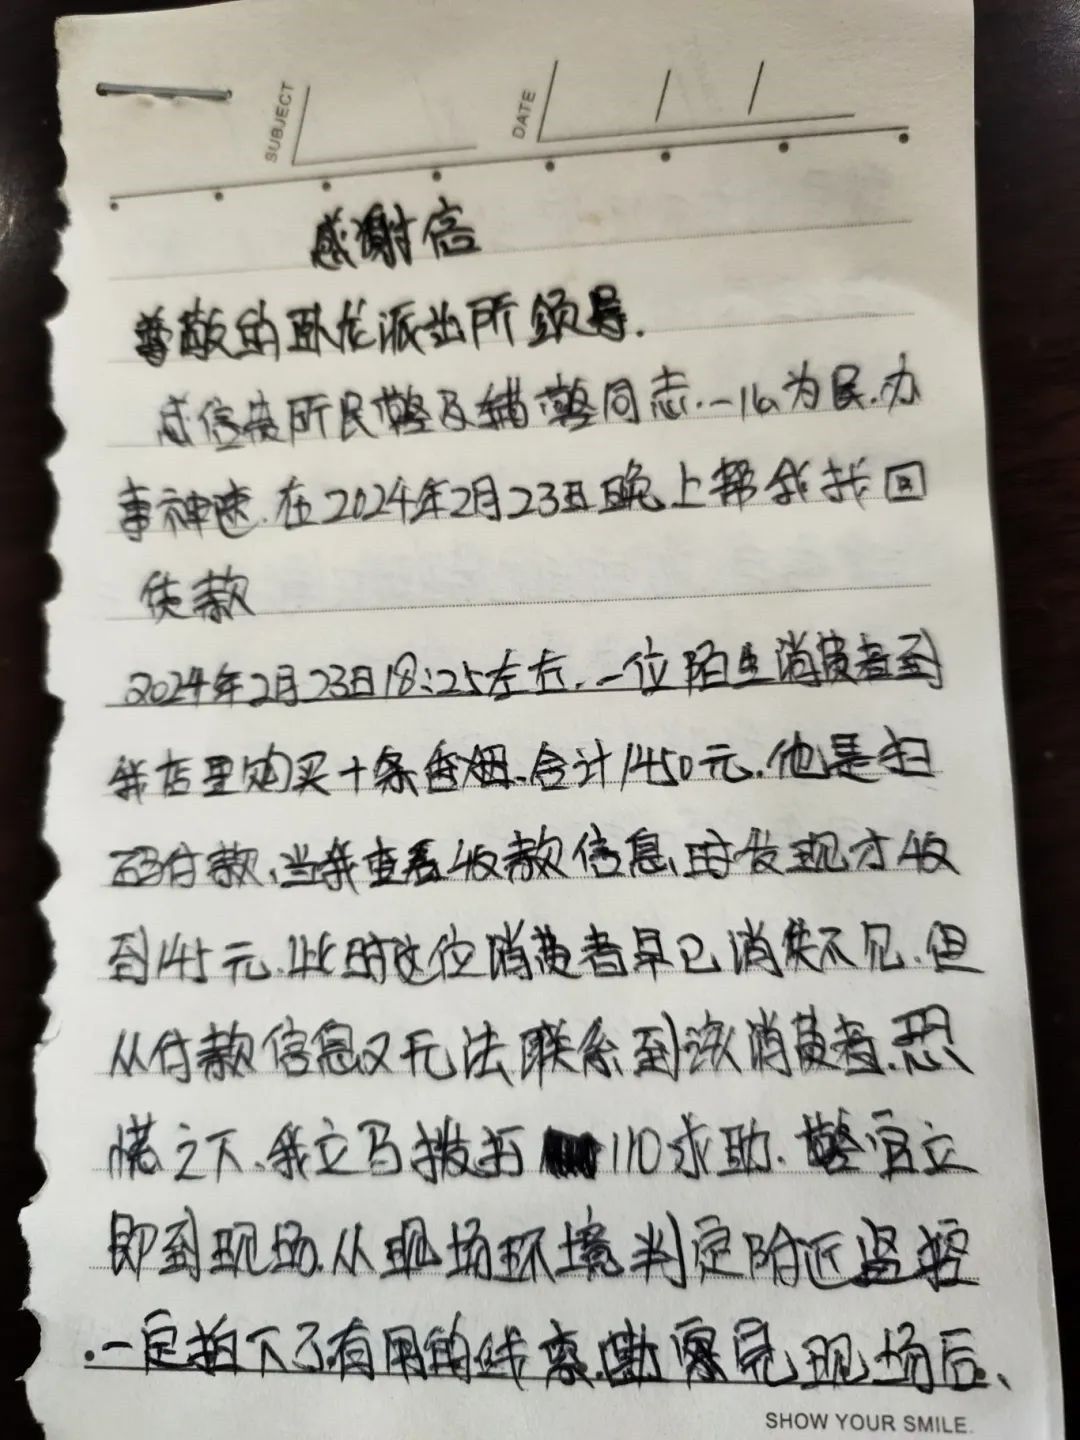 SUBJECT
DATE
感谢信
尊敬的卧龙派出所领导.
感信贵所民警及辅警同志.一心为民.办
事神速.在2024年2月23日晚上帮我找回
货款
2024年2月23日18:25左右.一位陌生消费者到
我店里购买十条香烟、合计1450元.他是扫
码付款、当我查看收款信息、时发现才收
到145元.此时这位消费者早已消失不见.但
从付款信息又无法联系到该消费者.恐
慌之下、我立马拨打110求助.警官立
即到现场.从现场环境判定附近监控
.一定拍下了有用的线索.勘察完现场后、
SHOW YOUR SMILE.